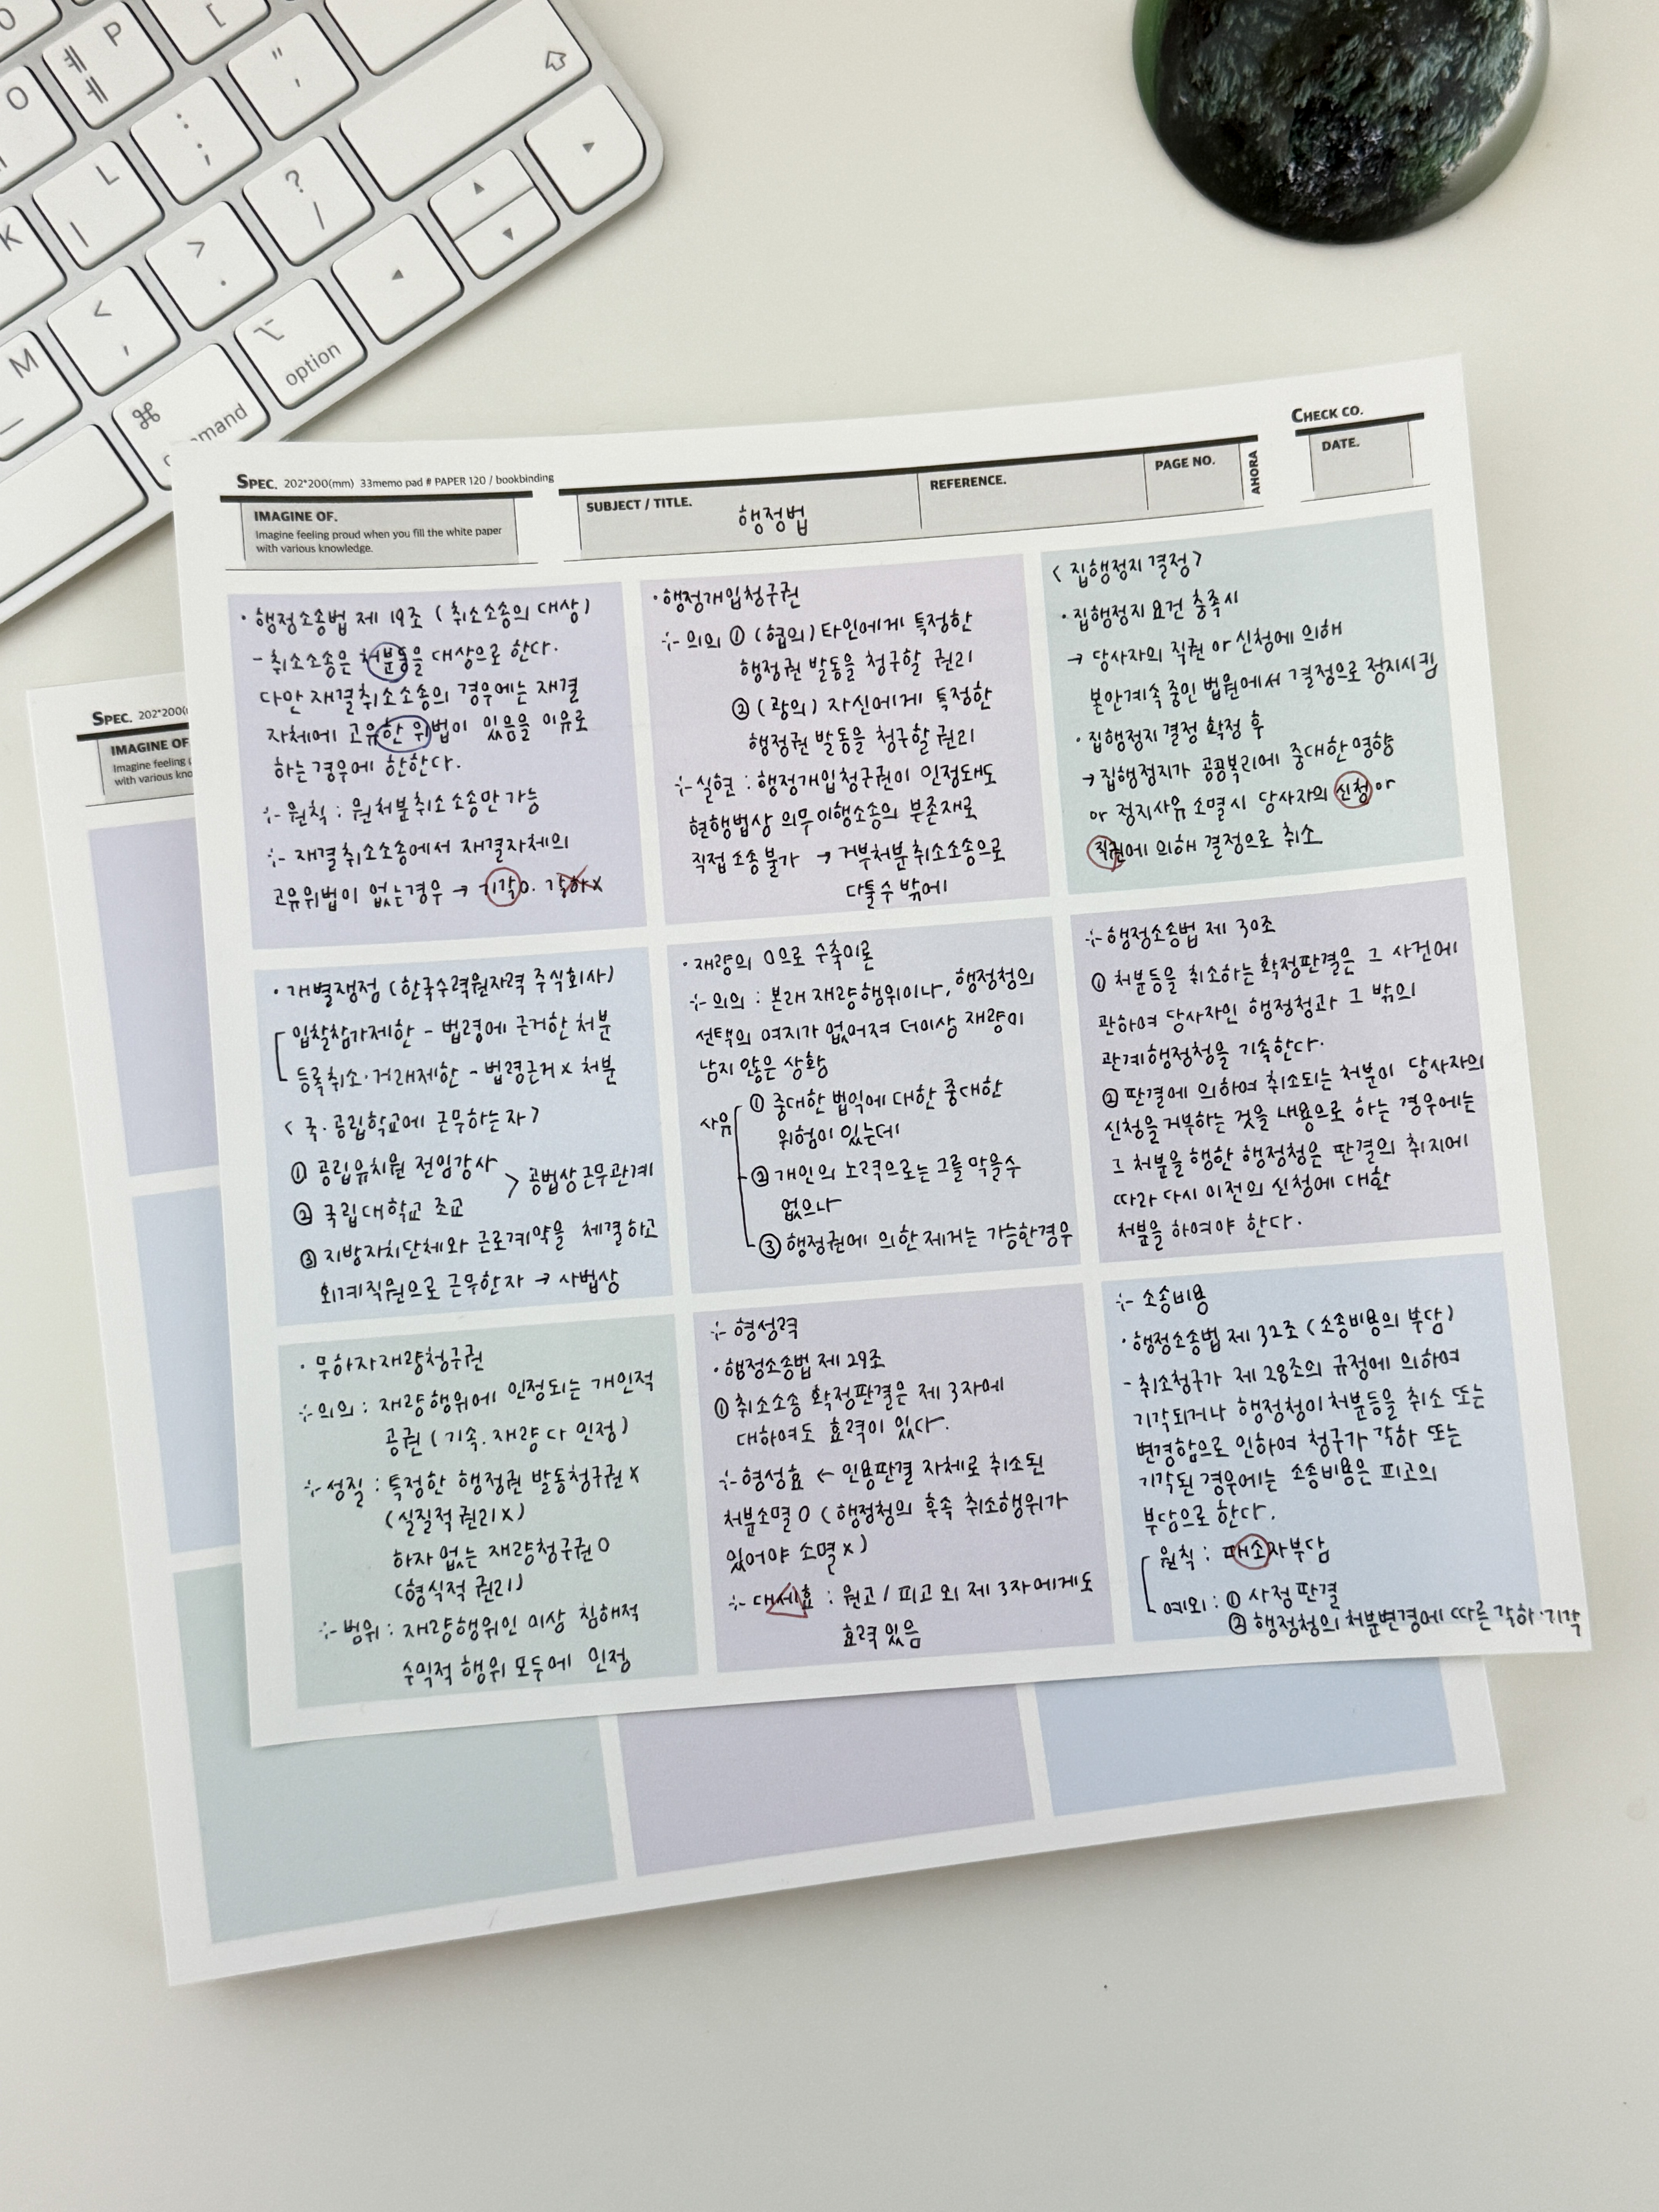 O
P
ㅖ
ㅔ
[
"
'
L
ㅣ
:
;
?
/
K
>
.
<
,
M
ㅡ
⌥
option
⌘
mand
SPEC. 202*200(mm) 33memo pad # PAPER 120 / bookbinding
IMAGINE OF.
Imagine feeling proud when you fill the white paper
with various knowledge.
SUBJECT / TITLE.
행정법
REFERENCE.
PAGE NO.
AHORA
CHECK CO.
DATE.
· 행정소송법 제 19조 (취소소송의 대상)
- 취소소송은 처분등을 대상으로 한다.
다만 재결취소소송의 경우에는 재결
자체에 고유한 위법이 있음을 이유로
하는 경우에 한한다.
⁛ 원칙 : 원처분취소소송만 가능
⁛ 재결취소소송에서 재결자체의
고유위법이 없는경우 → 기각o. 각하x
· 행정개입청구권
⁛ 의의 ① (협의) 타인에게 특정한
행정권 발동을 청구할 권리
② (광의) 자신에게 특정한
행정권 발동을 청구할 권리
⁛ 실현 : 행정개입청구권이 인정돼도
현행법상 의무이행소송의 부존재로
직접 소송 불가 → 거부처분취소소송으로
다툴수 밖에
< 집행정지 결정 >
· 집행정지 요건 충족시
→ 당사자의 직권 or 신청에 의해
본안계속 중인 법원에서 결정으로 정지시킴
· 집행정지 결정 확정 후
→ 집행정지가 공공복리에 중대한 영향
or 정지사유 소멸시 당사자의 신청 or
직권에 의해 결정으로 취소
· 개별쟁점 (한국수력원자력 주식회사)
입찰참가제한 - 법령에 근거한 처분
등록취소·거래제한 - 법령근거 x 처분
< 국.공립학교에 근무하는 자 >
① 공립유치원 전임강사
② 국립대학교 조교
> 공법상근무관계
③ 지방자치단체와 근로계약을 체결하고
회계직원으로 근무한자 → 사법상
· 재량의 0으로 수축이론
⁛ 의의 : 본래 재량행위이나, 행정청의
선택의 여지가 없어져 더이상 재량이
남지 않은 상황
사유
① 중대한 법익에 대한 중대한
위험이 있는데
② 개인의 노력으로는 그를 막을수
없으나
③ 행정권에 의한 제거는 가능한경우
⁛ 행정소송법 제 30조
① 처분등을 취소하는 확정판결은 그 사건에
관하여 당사자인 행정청과 그 밖의
관계행정청을 기속한다.
② 판결에 의하여 취소되는 처분이 당사자의
신청을 거부하는 것을 내용으로 하는 경우에는
그 처분을 행한 행정청은 판결의 취지에
따라 다시 이전의 신청에 대한
처분을 하여야 한다.
· 무하자재량청구권
⁛ 의의 : 재량행위에 인정되는 개인적
공권 (기속.재량 다 인정)
⁛ 성질 : 특정한 행정권 발동청구권 x
(실질적 권리 x)
하자 없는 재량청구권 O
(형식적 권리)
⁛ 범위 : 재량행위인 이상 침해적
수익적 행위 모두에 인정
⁛ 형성력
· 행정소송법 제 29조
① 취소소송 확정판결은 제 3자에
대하여도 효력이 있다.
⁛ 형성효 ← 인용판결 자체로 취소된
처분소멸 O (행정청의 후속 취소행위가
있어야 소멸 x)
⁛ 대세효 : 원고 / 피고 외 제 3자에게도
효력 있음
⁛ 소송비용
· 행정소송법 제 32조 (소송비용의 부담)
- 취소청구가 제 28조의 규정에 의하여
기각되거나 행정청이 처분등을 취소 또는
변경함으로 인하여 청구가 각하 또는
기각된 경우에는 소송비용은 피고의
부담으로 한다.
원칙 : 패소자부담
예외 : ① 사정판결
② 행정청의 처분변경에 따른 각하·기각
SPEC. 202*200(
IMAGINE OF
Imagine feeling
with various kno